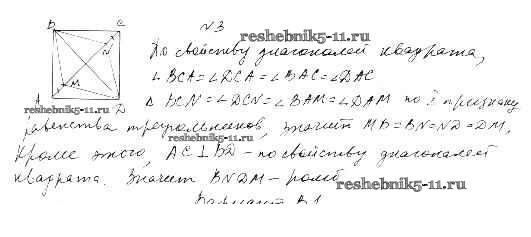 N3
B C
reshebnik5-11.ru
По свойству диагоналей квадрата,
N
∠BCA = ∠DCA = ∠BAC = ∠DAC
M
reshebnik5-11.ru
△ BCN = ∠DCN = ∠BAM = ∠DAM по I признаку
A D
reshebnik5-11.ru
равенства треугольников, значит MB=BN=ND=DM,
Кроме этого, AC⊥BD - по свойству диагоналей
квадрата. Значит BNDM - ромб
reshebnik5-11.ru
Вариант В1